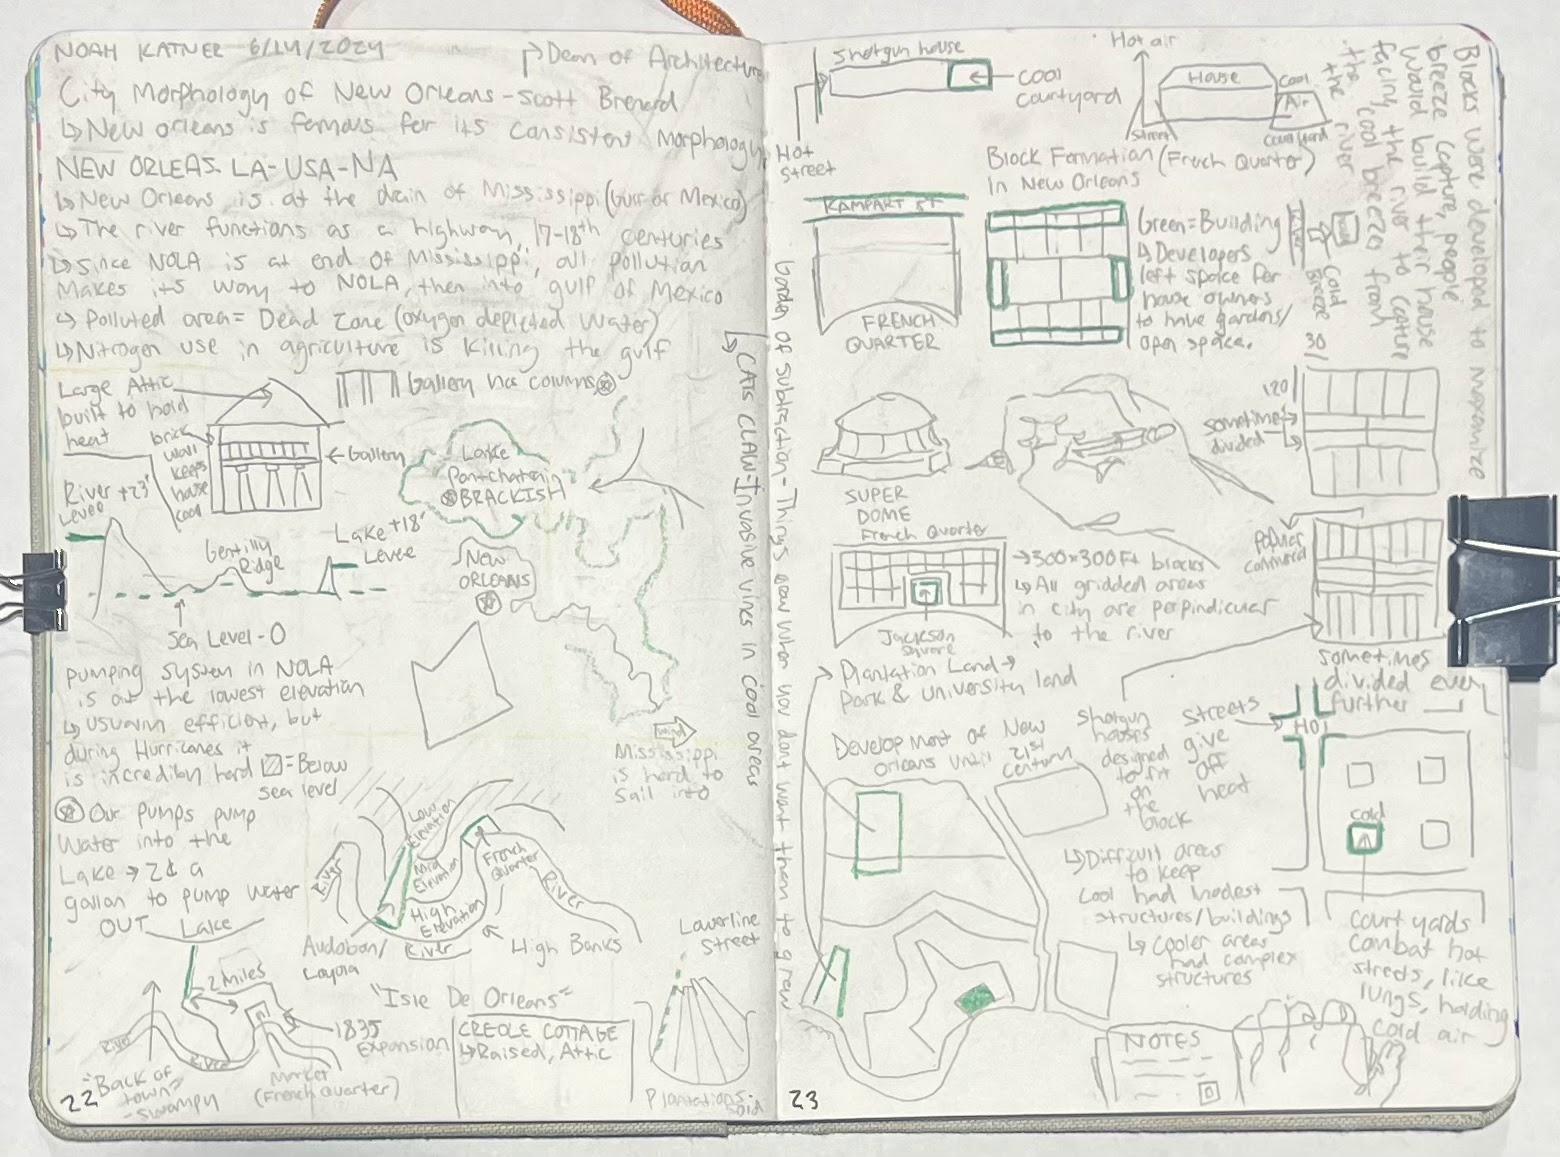 NOAH KATNER 6/14/2024
Dean of Architecture
City Morphology of New Orleans - Scott Bernard
↳ New Orleans is famous for its consistent morphology
NEW ORLEAS. LA-USA-NA
↳ New Orleans is at the drain of Mississippi (Gulf of Mexico)
↳ The river functions as a highway, 17-18th centuries
↳ Since NOLA is at end of Mississippi, all pollution
Makes its way to NOLA, then into gulf of Mexico
↳ Polluted area = Dead Zone (oxygen depleted water)
↳ Nitrogen use in agriculture is killing the gulf
Large Attic
built to hold
heat
Gallery has columns
brick
wall
keeps
house
cool
← Gallery
Lake
Pontchatrain
BRACKISH
River +23'
Levee
Gentilly
Ridge
Lake +18'
Levee
Sea Level - 0
NEW
ORLEANS
Pumping system in NOLA
is at the lowest elevation
↳ Usually efficient, but
during Hurricanes it
is incredibly hard
= Below
sea level
Our pumps pump
Water into the
Lake → 2¢ a
gallon to pump water
OUT
wind
Mississippi
is hard to
sail into
↳ CATS CLAW-Invasive vines in cool areas
Low
Elevation
Mid
Elevation
High
Elevation
River
French
Quarter
River
River
High Banks
Audoban/
Loyola
Lake
2 Miles
"Isle De Orleans"
1835
Expansion
River
River
"Back of
town"
-swampy
Market
(French Quarter)
CREOLE COTTAGE
↳ Raised, Attic
Lowerline
Street
Plantations
22
Garden of subtraction - Things grow when you dont want them to grow
Shotgun house
← Cool
Courtyard
Hot
Street
Hot air
House
Cool
Air
Street
Courtyard
Block Formation (French Quarter)
In New Orleans
Blocks were developed to maximize
breeze capture, people
would build their house
facing the river to capture
the cool breeze from
the river
RAMPART ST
FRENCH
QUARTER
Green = Building
↳ Developers
left space for
house owners
to have gardens/
open space.
River
Cold
Breeze
30
120
sometimes
divided
SUPER
DOME
French Quarter
Jackson
Square
→ 300x300 Ft blocks
↳ All gridded areas
in city are perpindicular
to the river
sometimes
divided even
further
Plantation Land →
Park & University land
Development of New
Orleans until 21st
Century
Shotgun
houses
designed
to fit
on
the
block
Streets
give
off
heat
HOT
Cold
↳ Difficult areas
to keep
Cool had modest
structures/buildings
↳ cooler areas
had complex
structures
Courtyards
combat hot
streets, like
lungs, holding
cold air
NOTES
23